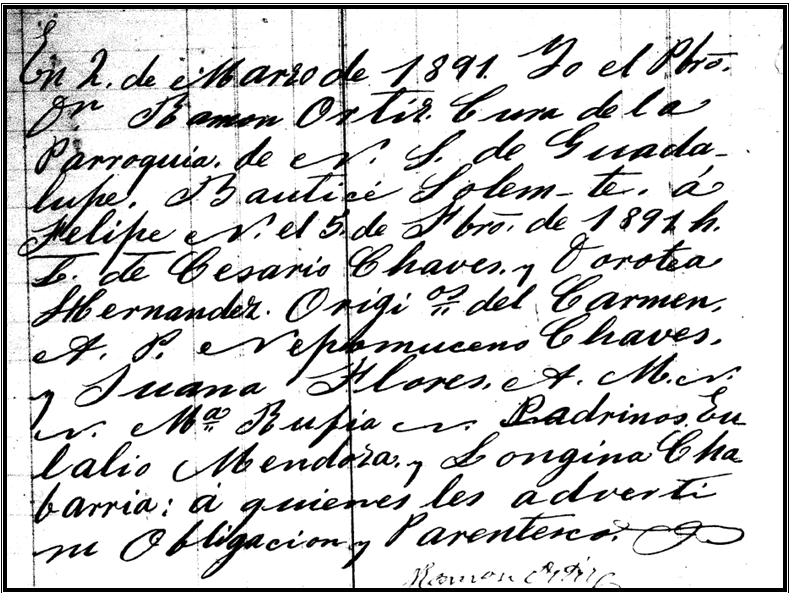 En 2. de Marzo de 1891. Yo el Pbro.
Dn Ramon Ortiz. Cura de la
Parroquia. de N. S. de Guada-
lupe. Bauticé Solem-te. á
Felipe N. el 5. de Fbro. de 1891 h.
L. de Cesario Chaves. y Dorotea
Hernandez. Origi os del Carmen.
A. P. Nepomuceno Chaves.
y Juana Flores. A. M. N.
N. Ma Rufia N. Padrinos. Eu
lalio Mendoza. y Longina Cha
barria: á quienes les adverti
su Obligacion y Parentesco.
Ramon Ortiz